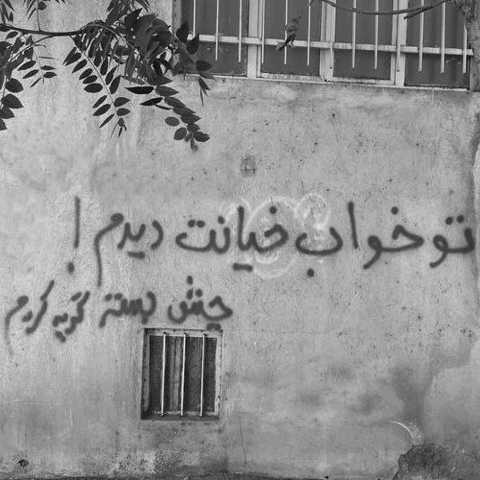 تو خواب خیانت دیدم!
چش بسته گریه کردم